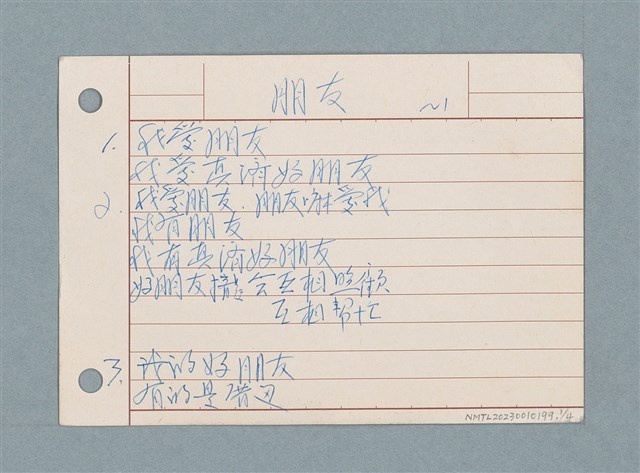 朋友 ~1
1. 我愛朋友
我愛真濟好朋友
2. 我愛朋友.朋友嘛愛我
我有朋友
我有真濟好朋友
好朋友攏會互相照顧
互相幫忙
3. 我的好朋友
有的是厝边
NMTL20230010199.1/4